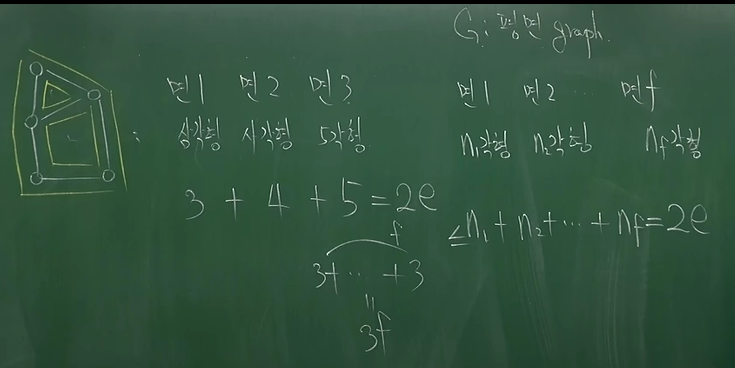 G: 평면 graph.
면1 면2 면3
삼각형 사각형 5각형
3 + 4 + 5 = 2e
f
3+ ··· +3
=
3f
면1 면2 ··· 면f
n₁각형 n₂각형 n_f각형
≤ n₁ + n₂ + ··· + n_f = 2e